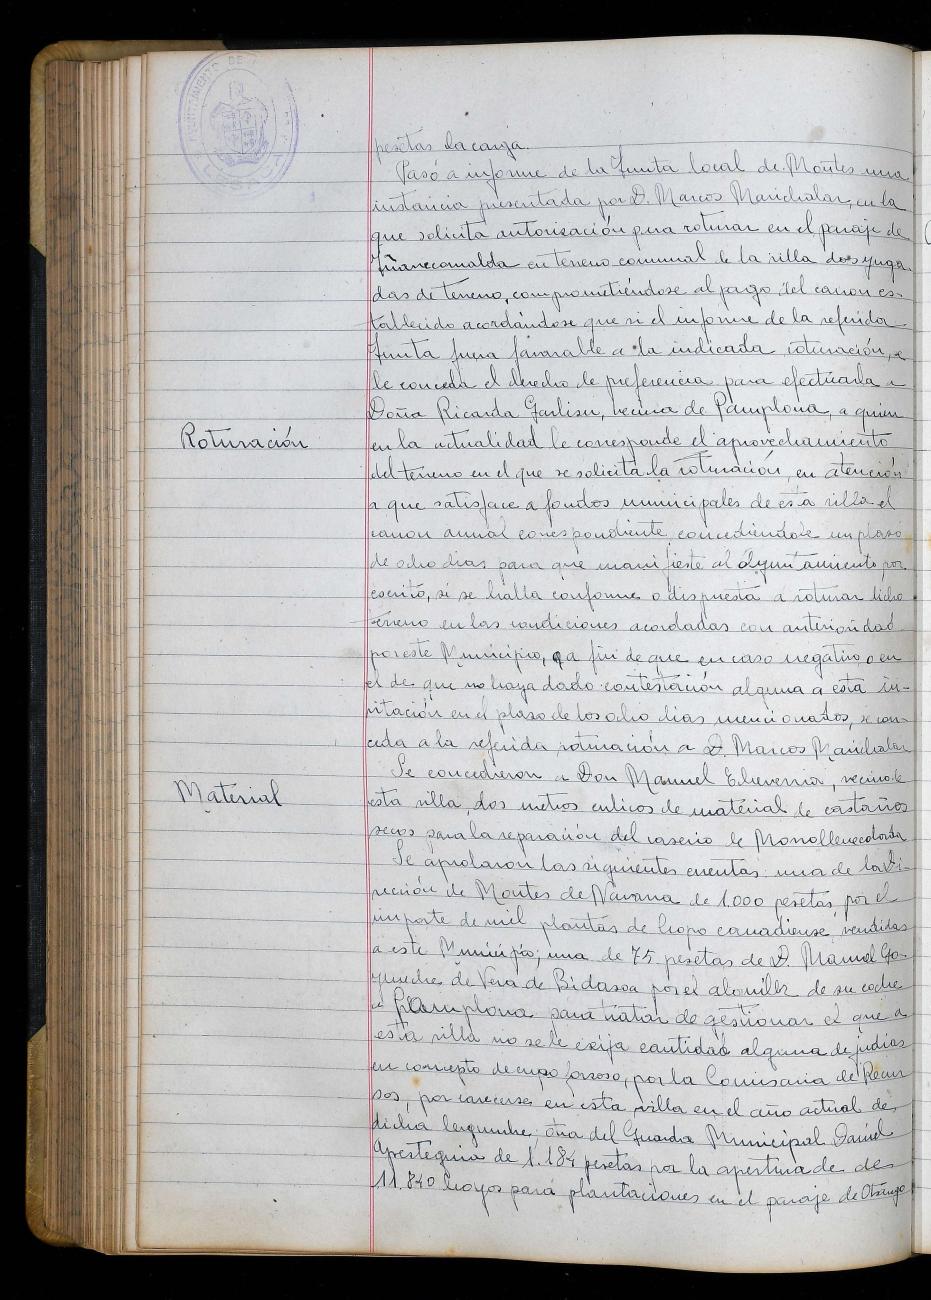 AYUNTAMIENTO DE
LESACA
pesetas la carga.
Pasó a informe de la Junta local de Montes una
instancia presentada por D. Marcos Marichalar, en la
que solicita autorización para roturar en el paraje de
en terreno comunal de la villa dos yuga-
das de terreno, comprometiéndose al pago del canon es-
tablecido acordándose que si el informe de la referida
Junta fuera favorable a la indicada roturación, se
le conceda el derecho de preferencia para efectuarla a
Doña Ricarda Garbisu, vecina de Pamplona, a quien
Roturación
en la actualidad le corresponde el aprovechamiento
del terreno en el que se solicita la roturación, en atención
a que satisface a fondos municipales de esta villa el
canon anual correspondiente, concediéndose un plaso
de ocho dias para que manifieste al Ayuntamiento por
escrito, si se halla conforme o dispuesta a roturar dicho
terreno en las condiciones acordadas con anterioridad
por este Municipio, a fin de que en caso negativo o en
el de que no haya dado contestación alguna a esta in-
vitación en el plaso de los ocho dias mencionados, se con-
ceda a la referida roturación a D. Marcos Marichalar
Se concedieron a Don Manuel Echeverria, vecino de
Material
esta villa, dos metros cubicos de material de castaños
secos para la reparación del caserio de
Se aprobaron las siguientes cuentas: una de la Di-
rección de Montes de Navarra de 1.000 pesetas, por el
importe de mil plantas de chopo canadiense, vendidas
a este Municipio; una de 75 pesetas de D. Manuel Go-
yeneche de Vera de Bidasoa por el alquiler de su coche
a Pamplona para tratar de gestionar el que a
esta villa no se le exija cantidad alguna de judias
en concepto de cupo forzoso, por la Comisaria de Recur
sos, por carecerse en esta villa en el año actual de
dicha legumbre; otra del Guarda Municipal Daniel
Apesteguia de 1.184 pesetas por la apertura de de
11.840 hoyos para plantaciones en el paraje de Otsango